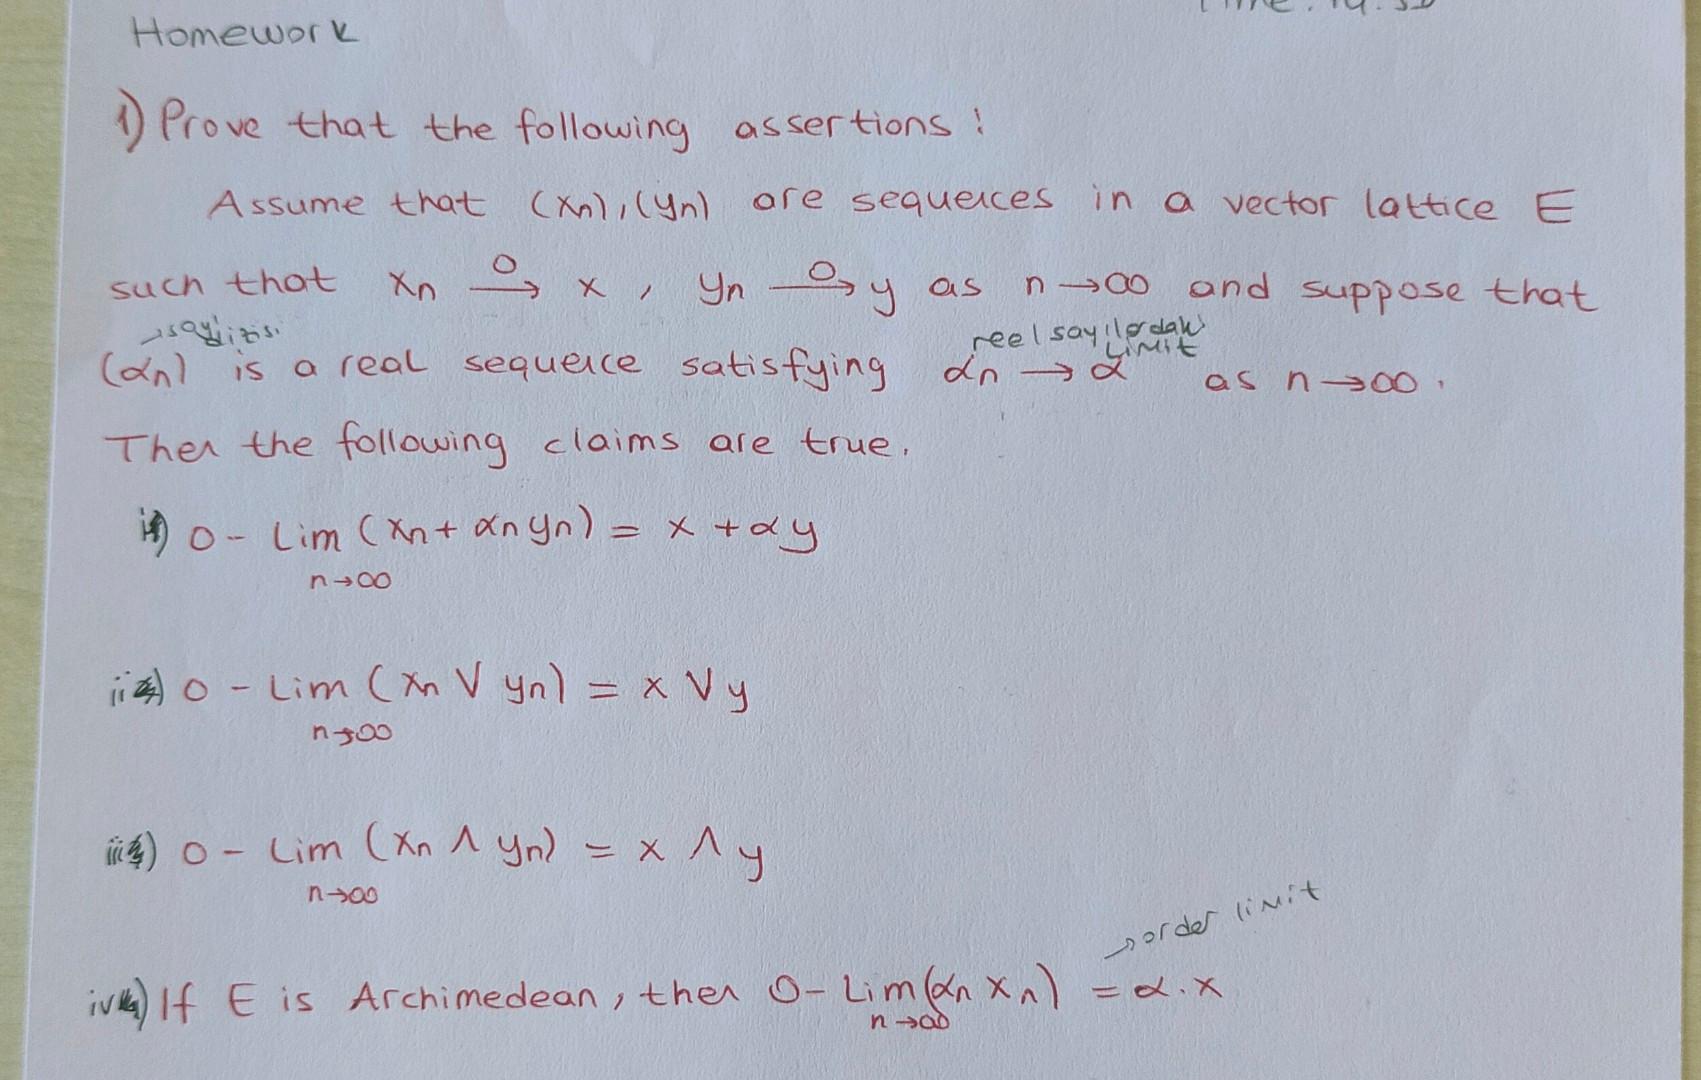 Homework
1) Prove that the following assertions :
Assume that (xn), (yn) are sequences in a vector lattice E
such that xn →o x , yn →o y as n→∞ and suppose that
→sayı dizisi
reel sayılardaki
Limit
(αn) is a real sequence satisfying αn → α as n→∞.
Then the following claims are true.
i) o - Lim (xn + αn yn) = x + αy
n→∞
ii) o - Lim (xn ∨ yn) = x ∨ y
n→∞
iii) o - Lim (xn ∧ yn) = x ∧ y
n→∞
→order limit
iv) If E is Archimedean, then o- Lim (αn xn) = α.x
n→∞